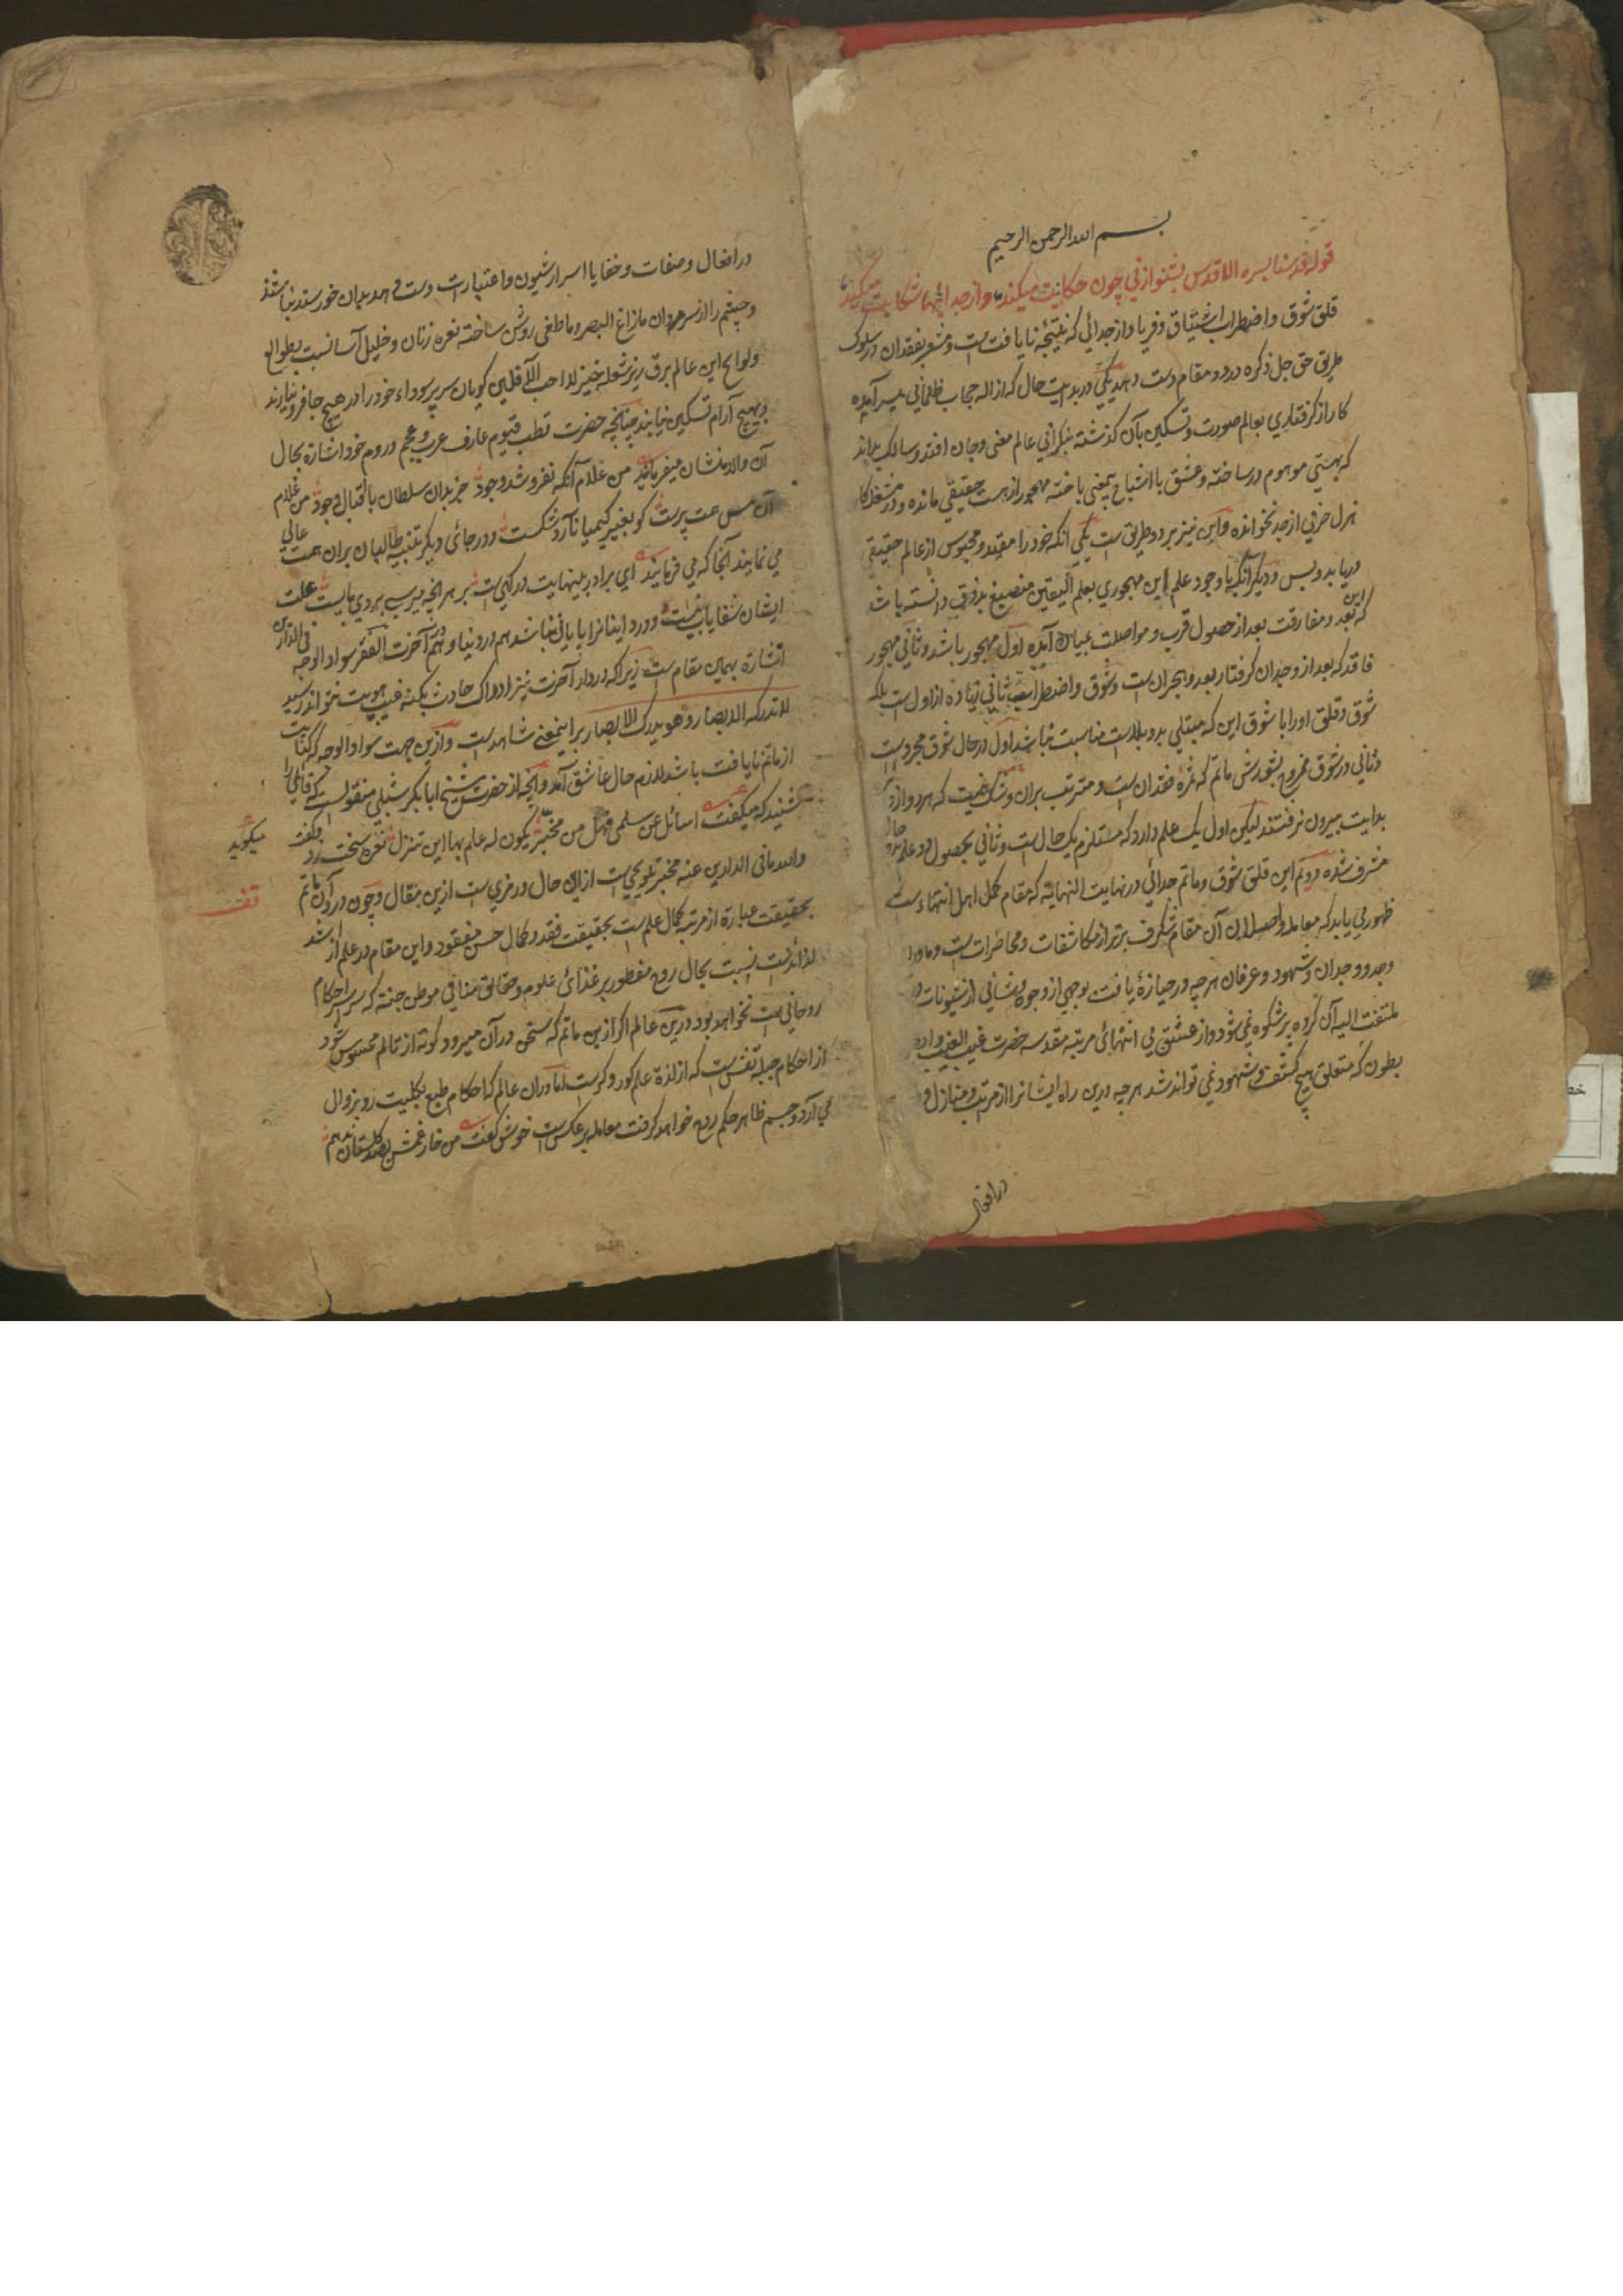 بسم الله الرحمن الرحیم
قوله قدسنا بسره الاقدس بشنو از نی چون حکایت میکند وز جدائیها شکایت میکند
قلق شوق و اضطراب اشتیاق و فریاد از جدائی که نتیجه نایافت ست و مشعر بفقدان در سلوک
طریق حق جل ذکره در دو مقام دست دهد یکی در بدایت حال که ازاله حجاب ظلمانی میسر آمده
کار از گرفتاری بعالم صورت و تسکین بآن گذشته بنگرانی عالم معنی و جان افتد و سالک بداند
که بهستی موهوم در ساخته و عشق با اشباح بیمعنی باخته مهجور از هست حقیقی مانده و در مشغله
هزل حرفی از جد نخوانده و این نیز بر دو طریق ست یکی انکه خود را مقید و محبوس از عالم حقیقی
دریابد و بس و دیگر آنکه با وجود علم این مهجوری بعلم الیقین منصبغ بذوق دانسته باشد
که این بعد و مفارقت بعد از حصول قرب و مواصلت بمیان آمده اول مهجور باشد و ثانی مهجور
فاقد که بعد از وجدان گرفتار بعد و هجران ست و شوق و اضطراب ثانی زیاده از اول ست بلکه
شوق و قلق او را با شوق این که مبتلی بدو بلاست مناسبت نباشد اول در حال شوق مجرد ست
و ثانی در شوق ممزوج بشورش ماتم که ثمره فقدان ست و مترتب بران و شک نیست که هر دو از
بدایت بیرون نرفتند لیکن اول یک علم دارد که مستلزم یک حال ست و ثانی بحصول دو علم بدو حال
مشرف شده دویم این قلق شوق و ماتم جدائی در نهایت النهایه که مقام کمل اهل انتهاء ست
ظهور می یابد که معامله واصلان آن مقام شگرف برتر از مکاشفات و محاضرات ست و ماورا
وجد و وجدان و شهود و عرفان هر چه در حیازهٔ یافت بوجهی از وجوه و شانی از شیونات
ملتفت الیه آن گروه پر شکوه نمی شود و از عشق بی انتهائی مرتبه مقدسه حضرت غیب الغیب
بطون که متعلق هیچ کشف و شهود نمی تواند شد هر چه درین راه ایشانرا از مرتب و منازل
در افعال
در افعال و صفات و خفایا اسرار شیون و اعتبارات دست دهد بدان خورسند نباشند
و چشم را از سرمه دان مازاغ البصر و ماطغی روشن ساخته نعره زنان و خلیل آسا نسبت بطوالع
و لوایح این عالم برق ریز شعله خیز لا احب الآفلین گویان سر پر سوداء خود را در هیچ جا فرو نیارند
و بهیچ آرام تسکین نیابند چنانچه حضرت قطب قیوم عارف عرب و عجم و روم خود اشاره بحال
آن والا منشان میفرمایند من غلام آنکه نفروشد وجود جز بدان سلطان با اقبال و جود من غلام
آن مس همت پرست کو بغیر کیمیا نارد شکست و در جائی دیگر تنبیه طالبان بران همت عالی
می نمایند آنجا که می فرمایند ای برادر بینهایت درگهی ست بر هر انچه میرسی بر وی مایست علت
ایشان شفایاب نیست و درد اینانرا پایانی نباشد هم در دنیا و هم در آخرت الفقر سواد الوجه فی الدارین
اشارة بهمین مقام ست زیرا که در دار آخرت نیز ادراک حادث بکنه غیب هویت نتواند رسید
لا تدرکه الابصار و هو یدرک الابصار بر اینمعنی شاهد ست و ازین جهت سواد الوجه که کنایت
از ماتم نایافت باشد لازم حال عاشق آمد و آنچه از حضرت شیخ ابابکر شبلی منقولست که قائلی را
شنید که میگفت اسائل عن سلمی فهل من مخبر یکون له علم بها این تنزل نعره سخت زد و گفت
میگوید
والله مافی الدارین عنه مخبر تلویحی ست ازان حال و رمزی ست ازین مقال و چون در آن ماتم
قف
بحقیقت عبارة از مرتبه کمال علم ست بحقیقت فقد و کمال حسن مفقود و این مقام در علم از اشد
لذائذ ست نسبت بحال روح مفطور بر غذائی علوم و حقایق منافی موطن جنت که سراسر احکام
روحانی ست نخواهد بود درین عالم اگر ازین ماتم که سخن در آن میرود گونه از تالم محسوس شود
از احکام جبله نفس ست که از لذة علم کور و کر ست اما دران عالم که احکام طبع بکلیت رو بزوال
می آرد و جسم ظاهر حکم روح خواهد گرفت معامله بر عکس ست خوش گفت من خار غمش بصد گلستان ندهم